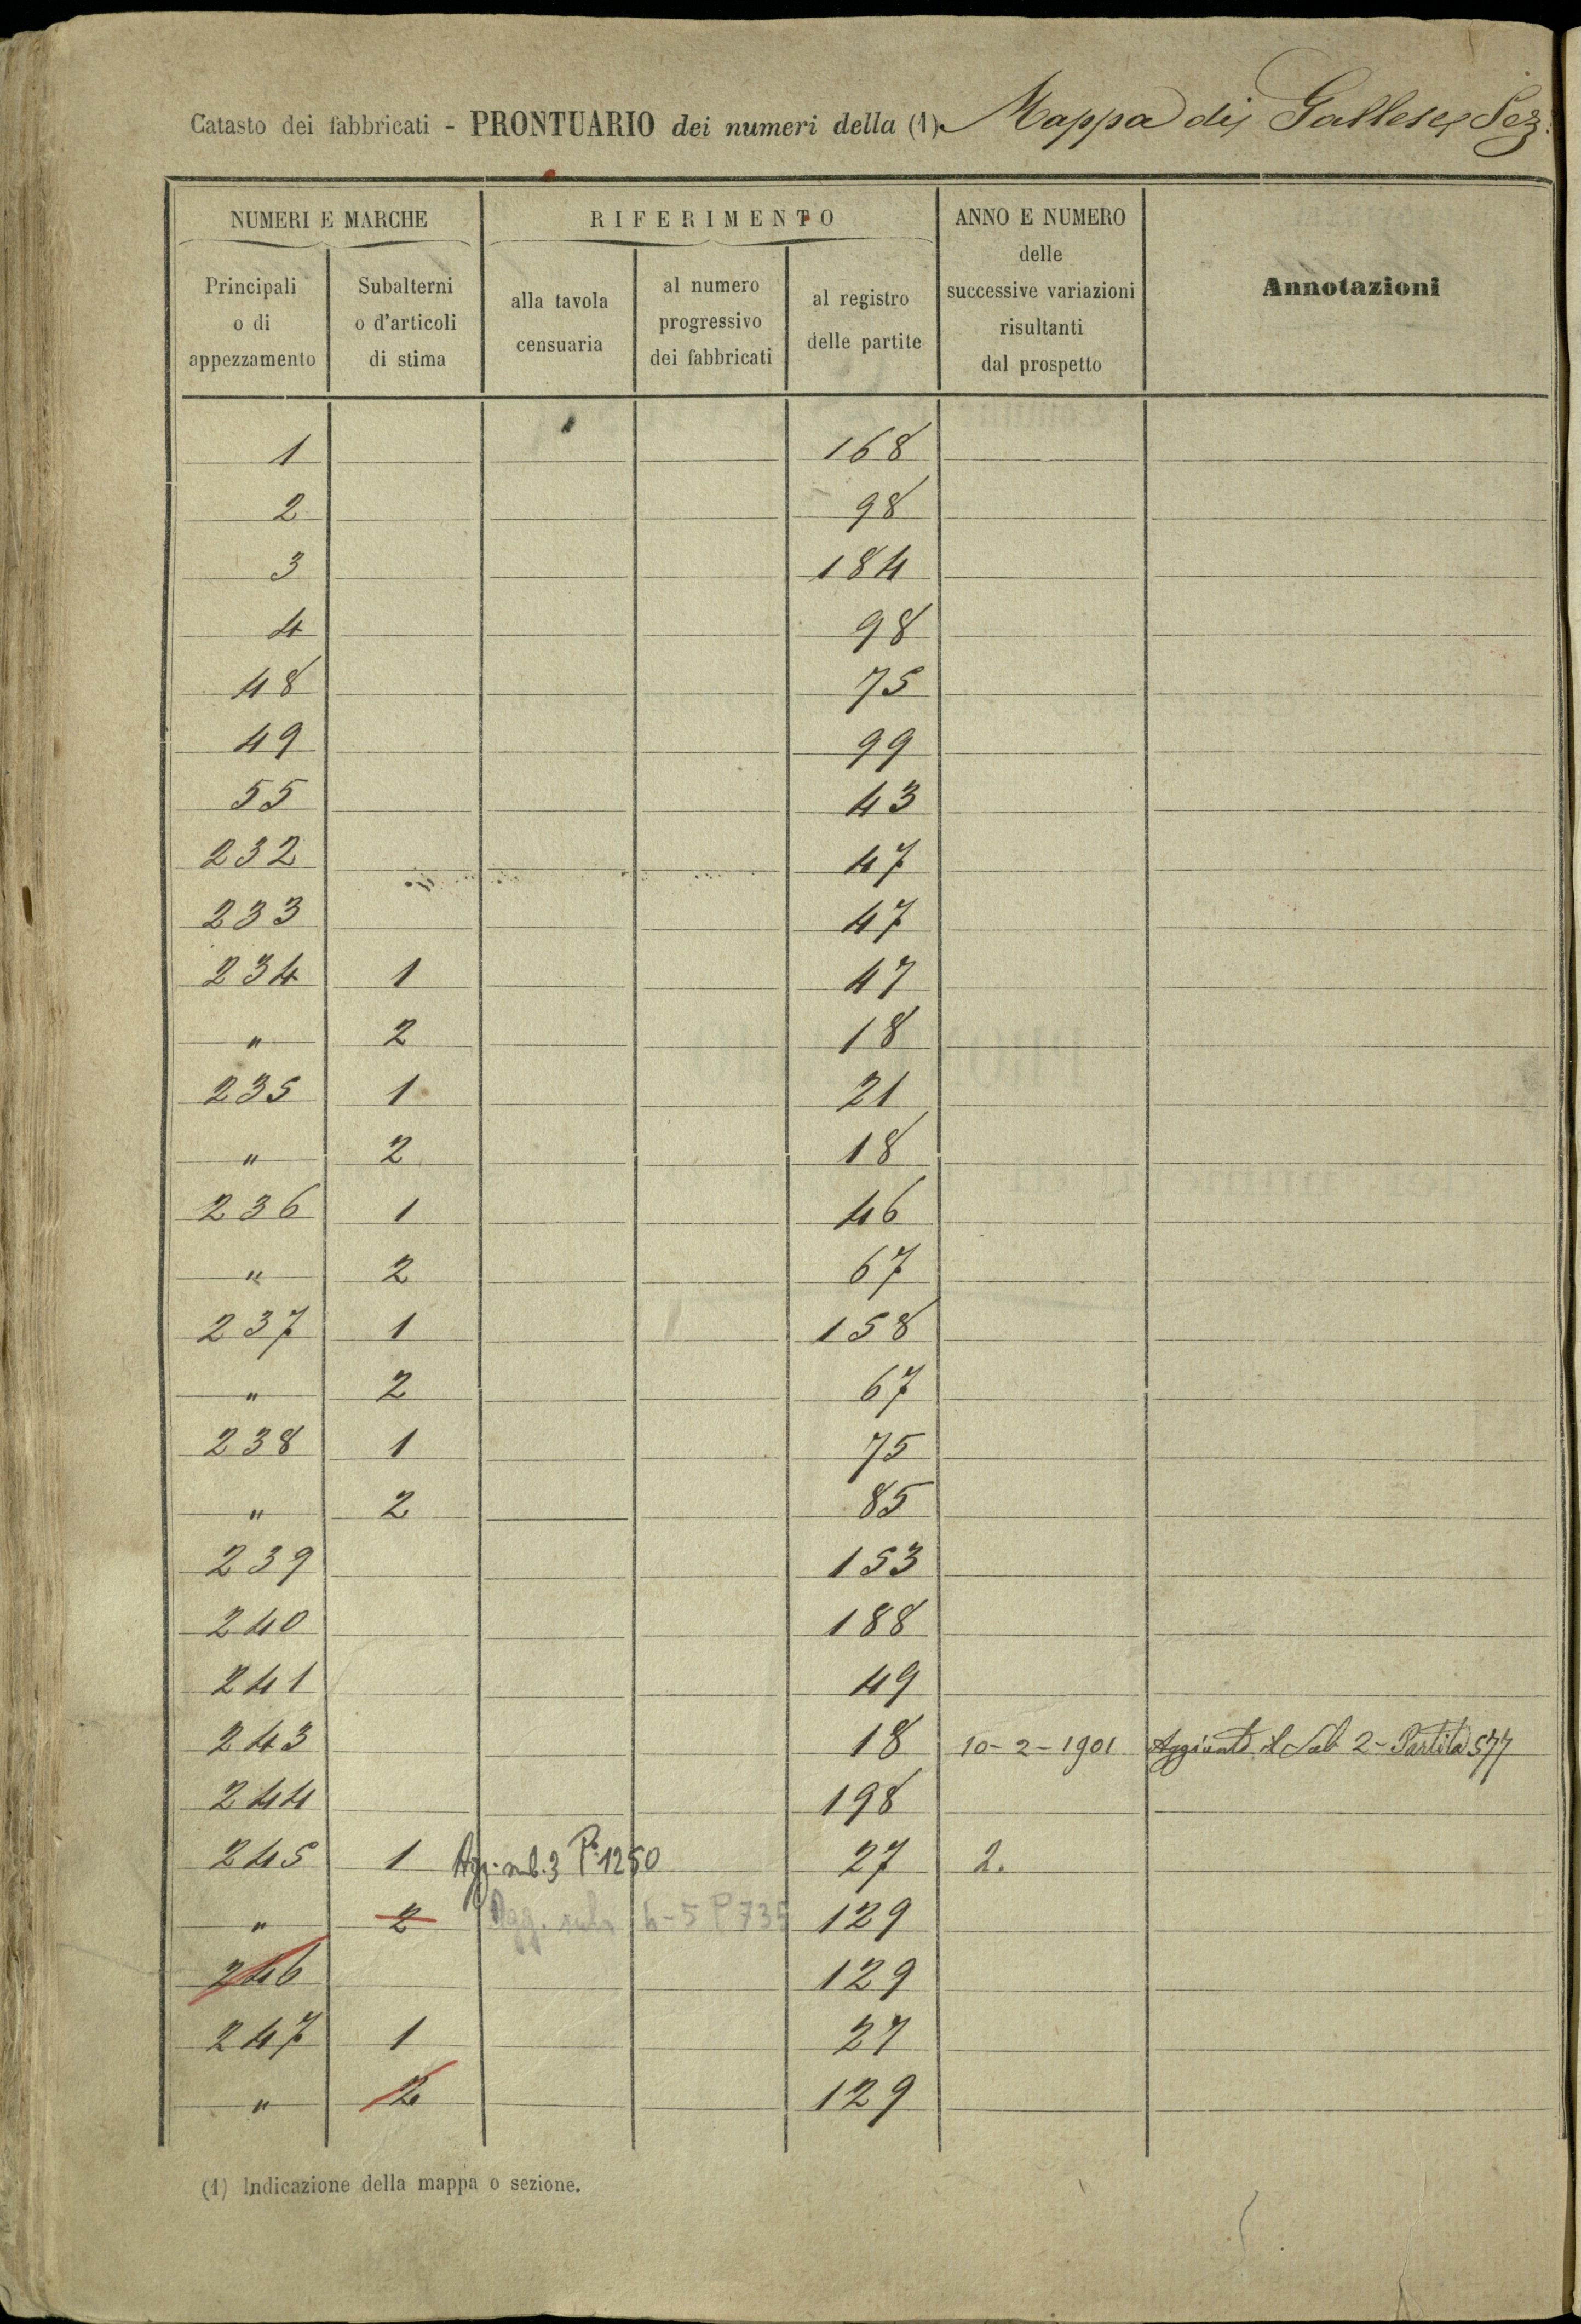 Catasto dei fabbricati - PRONTUARIO dei numeri della (1) Mappa di Gallese Sez.
NUMERI E MARCHE
Principali o di appezzamento
Subalterni o d'articoli di stima
RIFERIMENTO
alla tavola censuaria
al numero progressivo dei fabbricati
al registro delle partite
ANNO E NUMERO delle successive variazioni risultanti dal prospetto
Annotazioni
1 168
2 98
3 184
4 98
48 75
49 99
55 43
232 47
233 47
234 1 47
" 2 18
235 1 21
" 2 18
236 1 46
" 2 67
237 1 158
" 2 67
238 1 75
" 2 85
239 153
240 188
241 49
243 18 10-2-1901 Aggiunto il Sub 2 - Partita 577
244 198
245 1 Agg. sub. 3 P. 1250 27 2.
" 2 Agg. sub. 4-5 P 735 129
246 129
247 1 27
" 2 129
(1) Indicazione della mappa o sezione.